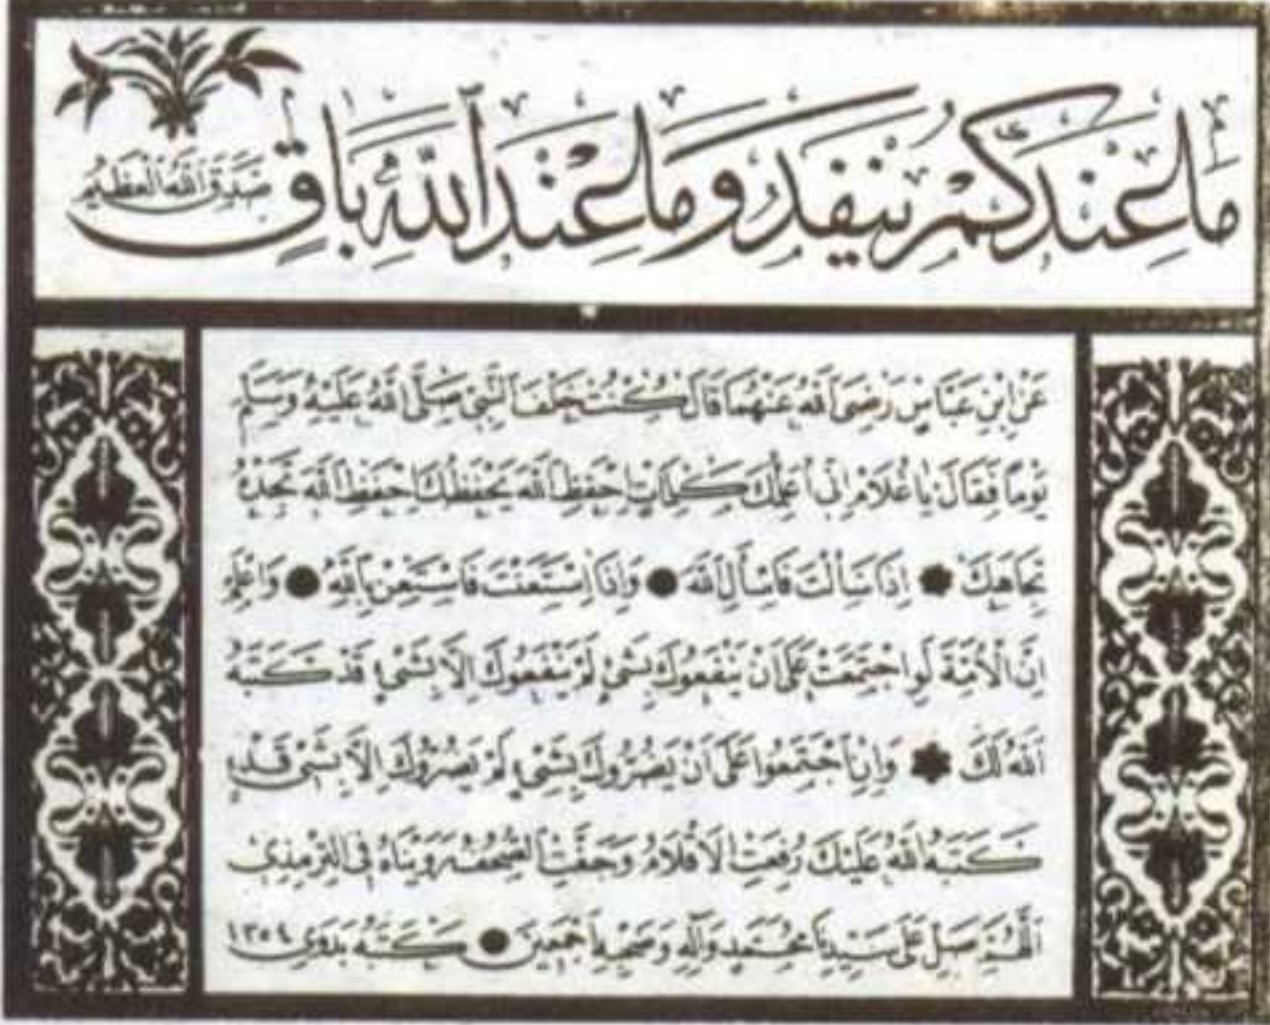 مَا عِنْدَكُمْ يَنْفَدُ وَمَا عِنْدَ ٱللَّهِ بَاقٍ
صَدَقَ اللهُ الْعَظِيمُ
عَنْ ابْنِ عَبَّاسٍ رَضِىَ اللهُ عَنْهُمَا قَالَ كُنْتُ خَلْفَ النَّبِىِّ صَلَّى اللهُ عَلَيْهِ وَسَلَّمَ
يَوْمًا فَقَالَ يَا غُلَامُ اِنِّى اُعَلِّمُكَ كَلِمَاتٍ اِحْفَظِ اللهَ يَحْفَظْكَ اِحْفَظِ اللهَ تَجِدْهُ
تِجَاهَكَ اِذَا سَأَلْتَ فَاسْأَلِ اللهَ وَاِذَا اسْتَعَنْتَ فَاسْتَعِنْ بِاللهِ وَاعْلَمْ
اِنَّ الْاُمَّةَ لَوِ اجْتَمَعَتْ عَلَى اَنْ يَنْفَعُوكَ بِشَىْءٍ لَمْ يَنْفَعُوكَ اِلَّا بِشَىْءٍ قَدْ كَتَبَهُ
اللهُ لَكَ وَاِنِ اجْتَمَعُوا عَلَى اَنْ يَضُرُّوكَ بِشَىْءٍ لَمْ يَضُرُّوكَ اِلَّا بِشَىْءٍ قَدْ
كَتَبَهُ اللهُ عَلَيْكَ رُفِعَتِ الْاَقْلَامُ وَجَفَّتِ الصُّحُفُ رَوَيْنَاهُ فِى التِّرْمِذِىِّ
اَللّٰهُمَّ صَلِّ عَلَى سَيِّدِنَا مُحَمَّدٍ وَآلِهِ وَصَحْبِهِ اَجْمَعِينَ كَتَبَهُ بَدَوِى ١٣٥٤